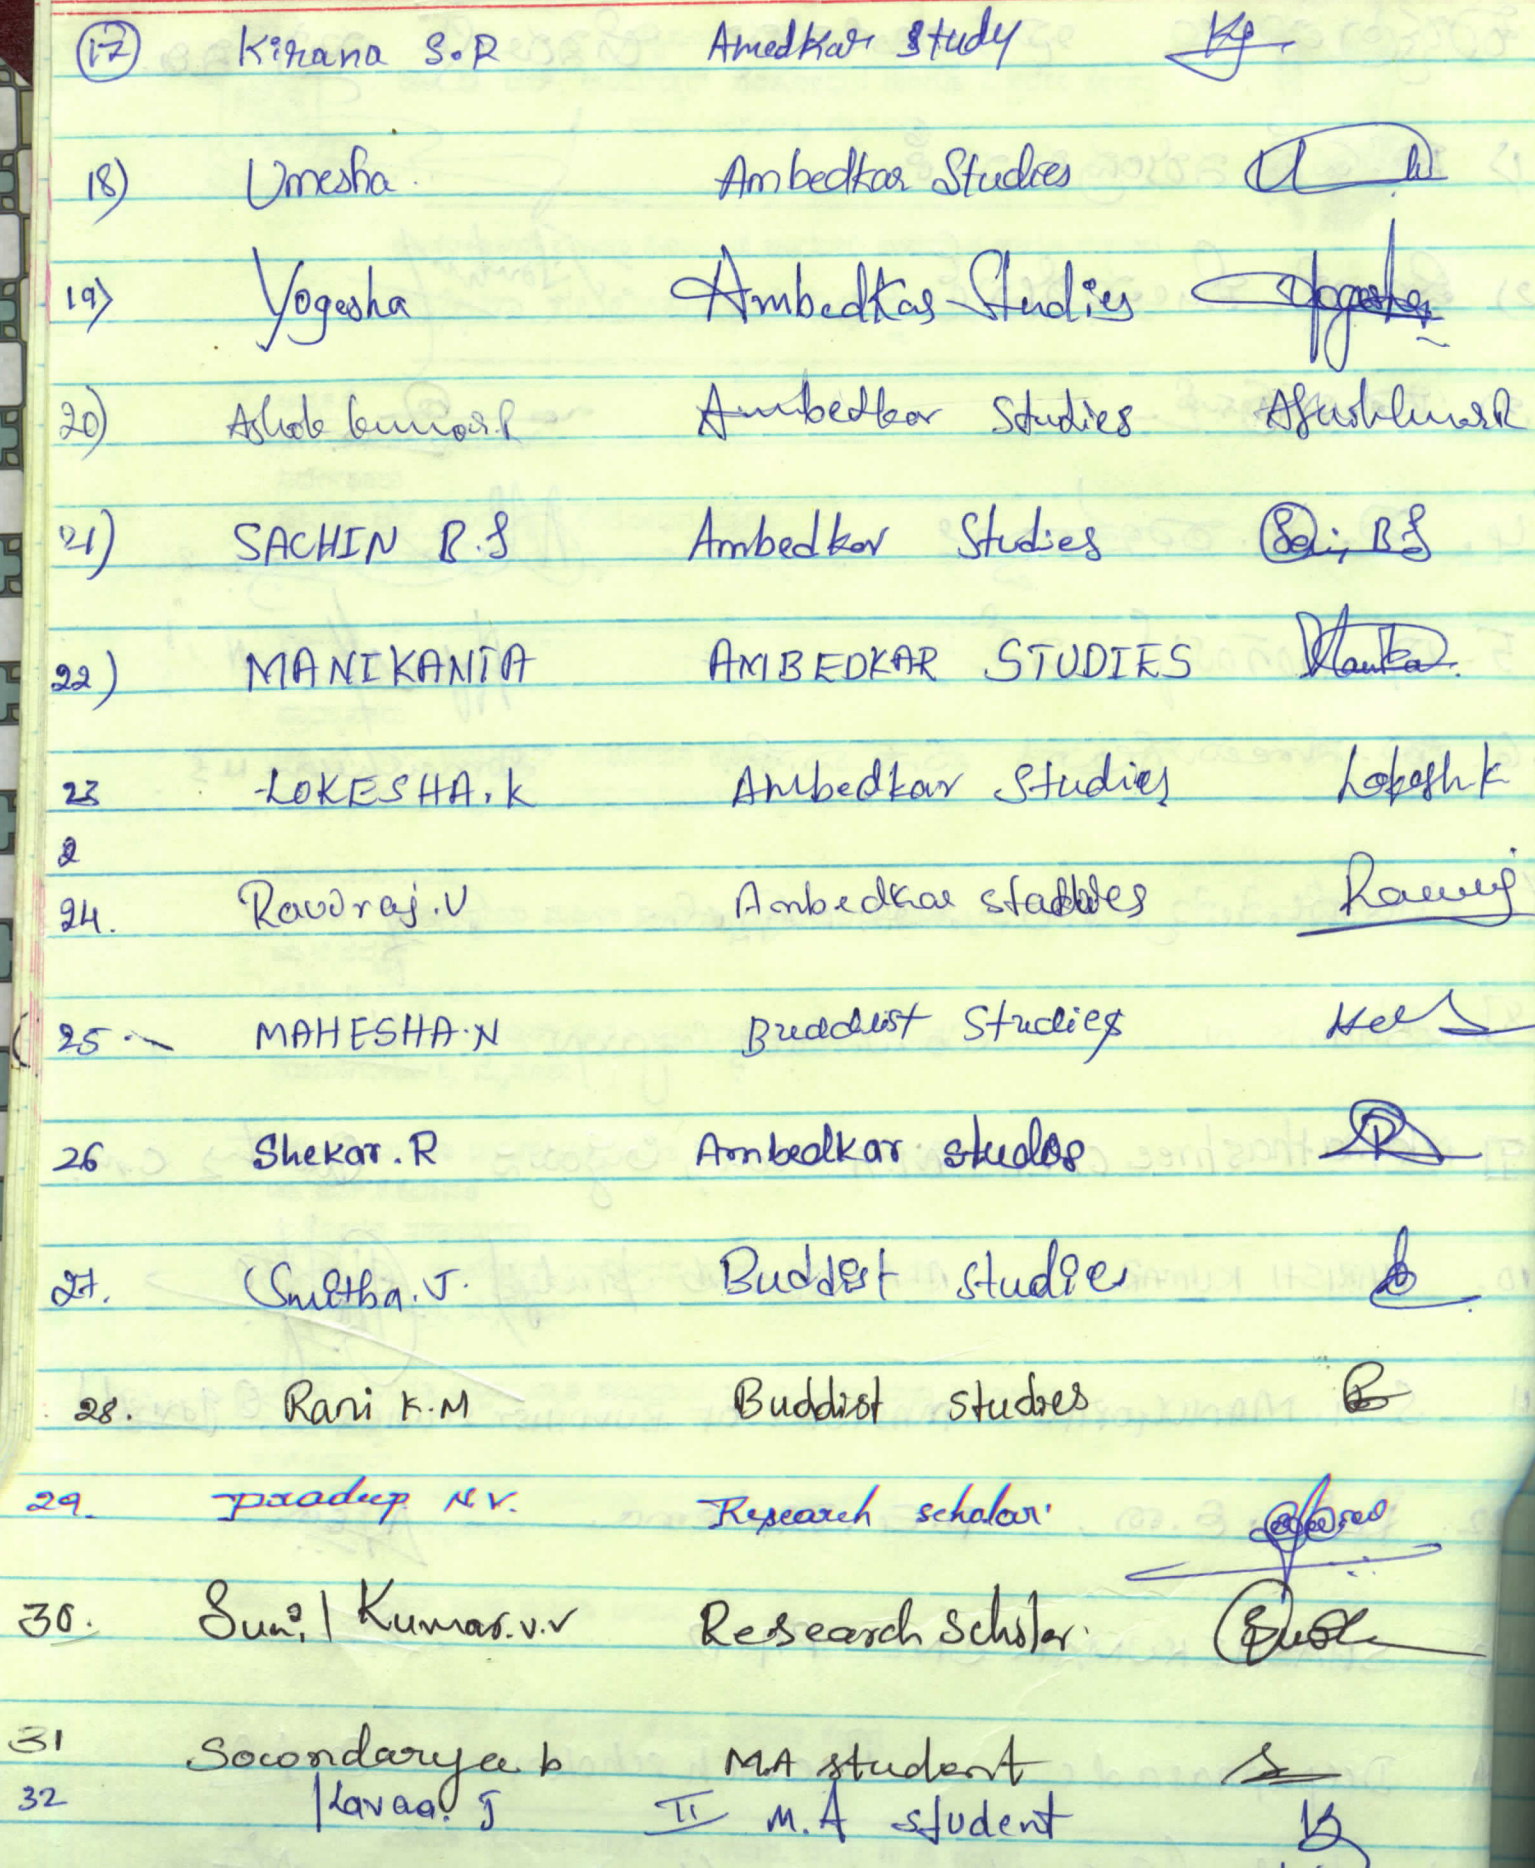 17 Kirana S.R Amedkar study
18) Umesha. Ambedkar Studies
19) Yogesha Ambedkar Studies Yogesha
20) Ashok kumar.R Ambedkar Studies
21) SACHIN B.S Ambedkar Studies B S
22) MANIKANTA AMBEDKAR STUDIES
23 LOKESHA.K Ambedkar Studies Lokesh k
2
24. Raviraj.V Ambedkar studies
25 MAHESHA.N Buddist Studies
26 Shekar.R Ambedkar studes R
27. Smitha.J. Buddist studies
28. Rani K.M Buddist studies
29. pradeep N.V. Research scholar
30. Sunil Kumar.v.v Research Scholar.
31 Socondarya b M.A student
32 Kavaa. J II M.A student